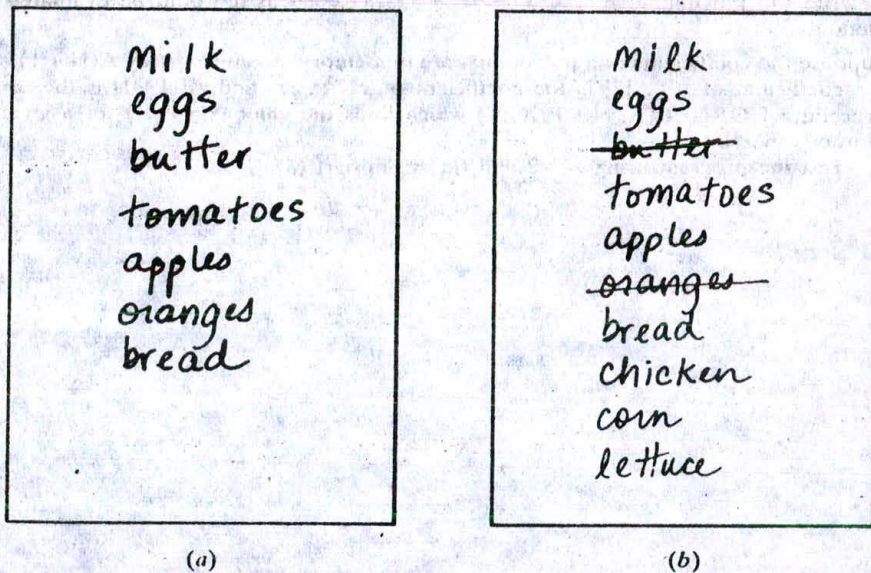 Milk
eggs
butter
tomatoes
apples
oranges
bread
(a)
Milk
eggs
butter
tomatoes
apples
oranges
bread
chicken
corn
lettuce
(b)